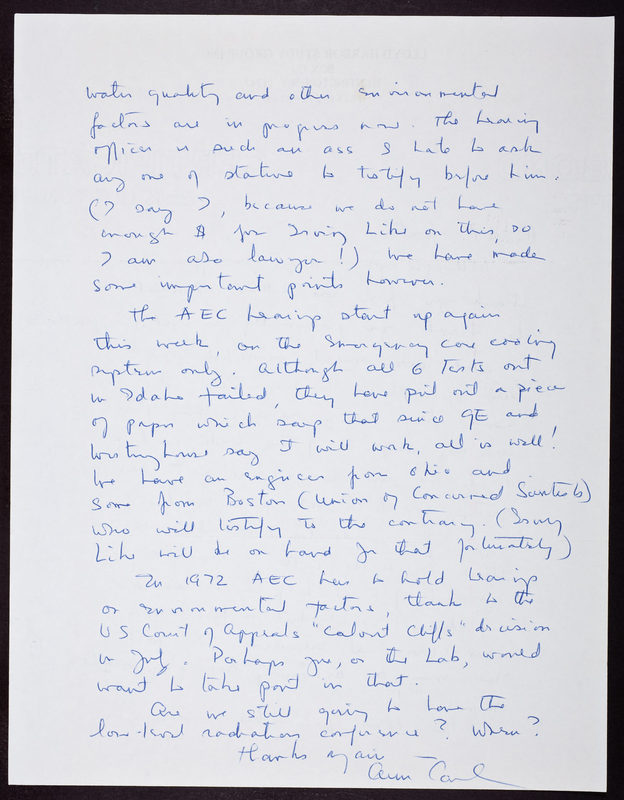 water quality and other environmental
factors are in progress now. The hearing
officer is such an ass I hate to ask
any one of stature to testify before him.
(I say I, because we do not have
enough $ for Irving Like on this, so
I am also lawyer!) We have made
some important points however.
The AEC hearings start up again
this week, on the Emergency core cooling
system only. Although all 6 Tests out
in Idaho failed, they have put out a piece
of paper which says that since GE and
Westinghouse say I will work, all is well!
We have an engineer from Ohio and
some from Boston (Union of Concerned Scientists)
who will testify to the contrary. (Irving
Like will be on hand for that fortunately)
In 1972 AEC has to hold hearings
on environmental factors, thanks to the
US Court of Appeals "Calvert Cliffs" decision
in July. Perhaps you, or the Lab, would
want to take part in that.
Are we still going to have the
low-level radiation conference? When?
Thanks again —
Ann